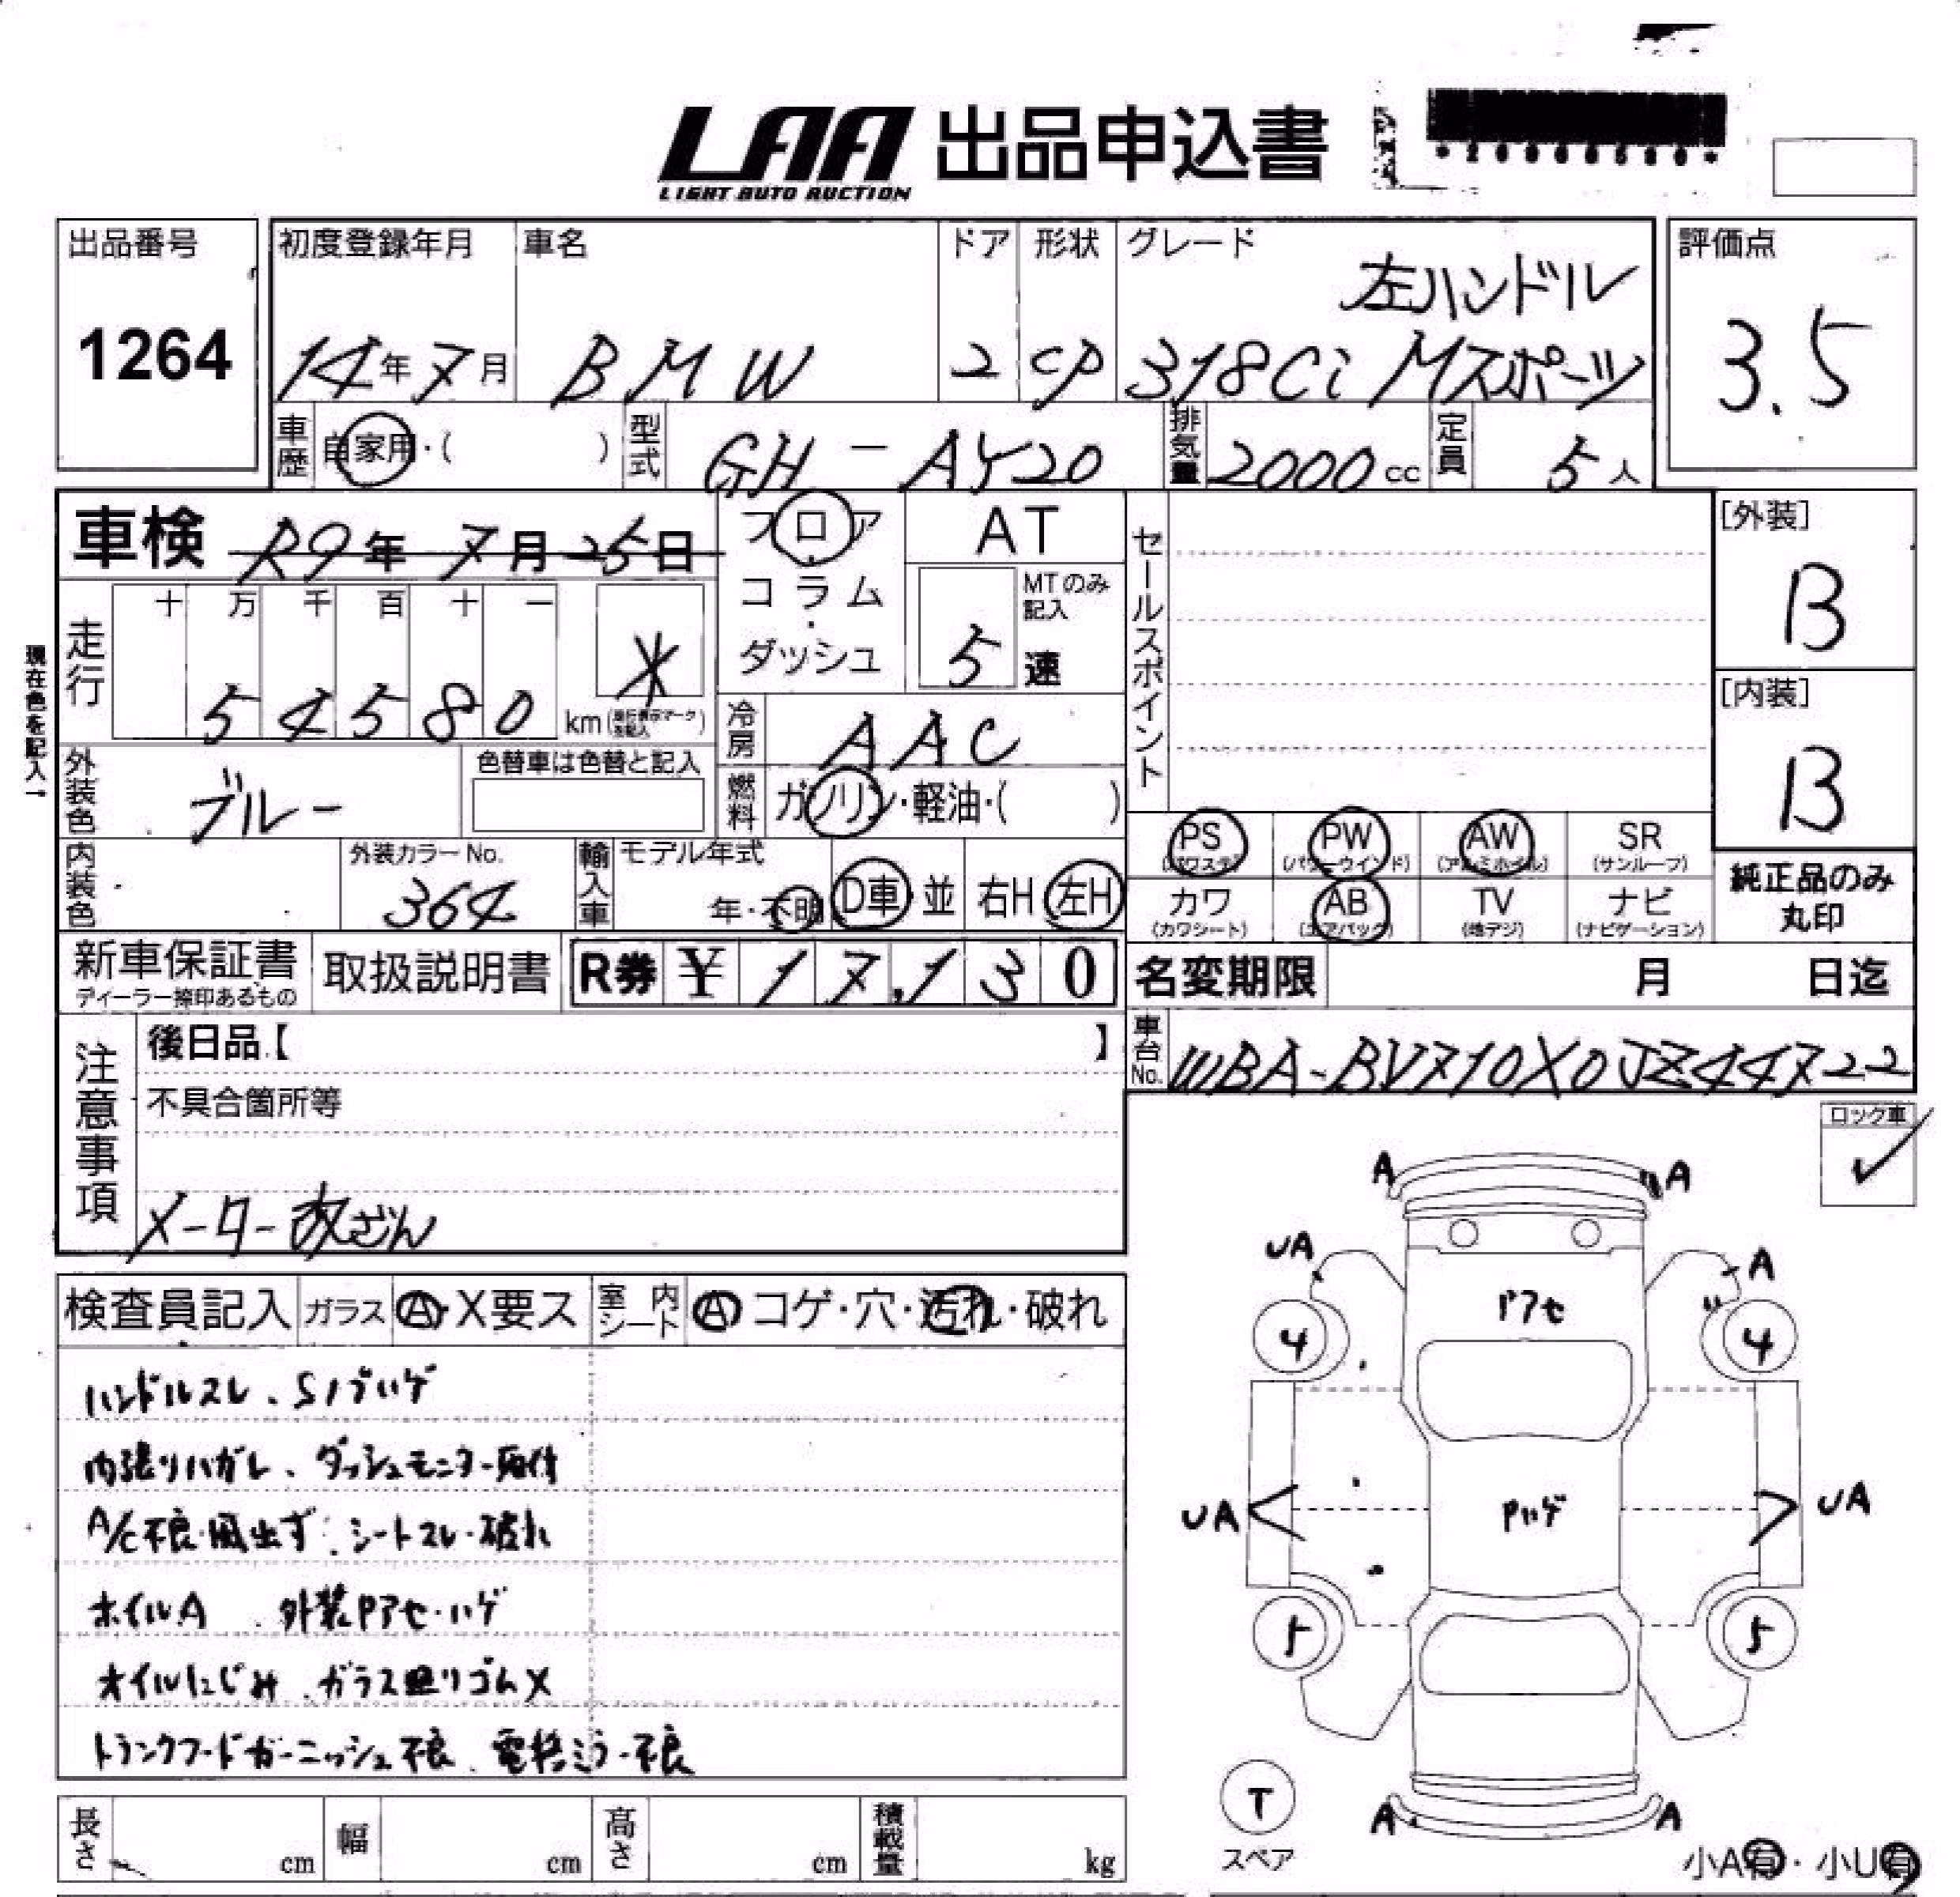 LAA 出品申込書
LIGHT AUTO AUCTION
出品番号
1264
初度登録年月
14年7月
車名
BMW
ドア
2
形状
CP
グレード
左ハンドル
318Ci Mスポーツ
評価点
3.5
車歴 自家用・( )
型式 GH-AY20
排気量 2000cc
定員 5人
車検 R9年7月25日
フロア・コラム・ダッシュ
AT
MTのみ記入
5速
セールスポイント
[外装]
B
[内装]
B
現在色を記入→
走行
十 万 千 百 十 一
5 4 5 8 0 km
*
冷房 AAC
外装色 ブルー
色替車は色替と記入
燃料 ガソリン・軽油・( )
内装色
外装カラーNo.
364
輸入車
モデル年式
年・不明
D車・並
右H 左H
PS (パワステ)
PW (パワーウインド)
AW (アルミホイル)
SR (サンルーフ)
カワ (カワシート)
AB (エアバック)
TV (地デジ)
ナビ (ナビゲーション)
純正品のみ
丸印
新車保証書
ディーラー捺印あるもの
取扱説明書
R券 ¥17,130
名変期限 月 日迄
車台No. WBA-BV710X0JZ44722
注意事項
後日品【 】
不具合箇所等
メーター改ざん
ロック車
✓
検査員記入
ガラス A・X要ス
室内シート A コゲ・穴・汚れ・破れ
ハンドルスレ、Sノブハゲ
内張りハガレ、ダッシュモニター取付
A/C不良・風出ず、シートスレ・破れ
ホイルA、外装Pアセ・ハゲ
オイルにじみ、ガラス廻りゴムX
トランクフードガーニッシュ不良、電格ミラー不良
A A
UA A
Pアセ
4 4
UA Pハゲ UA
5 5
T
スペア
A A
小A有・小U有
長さ cm
幅 cm
高さ cm
積載量 kg